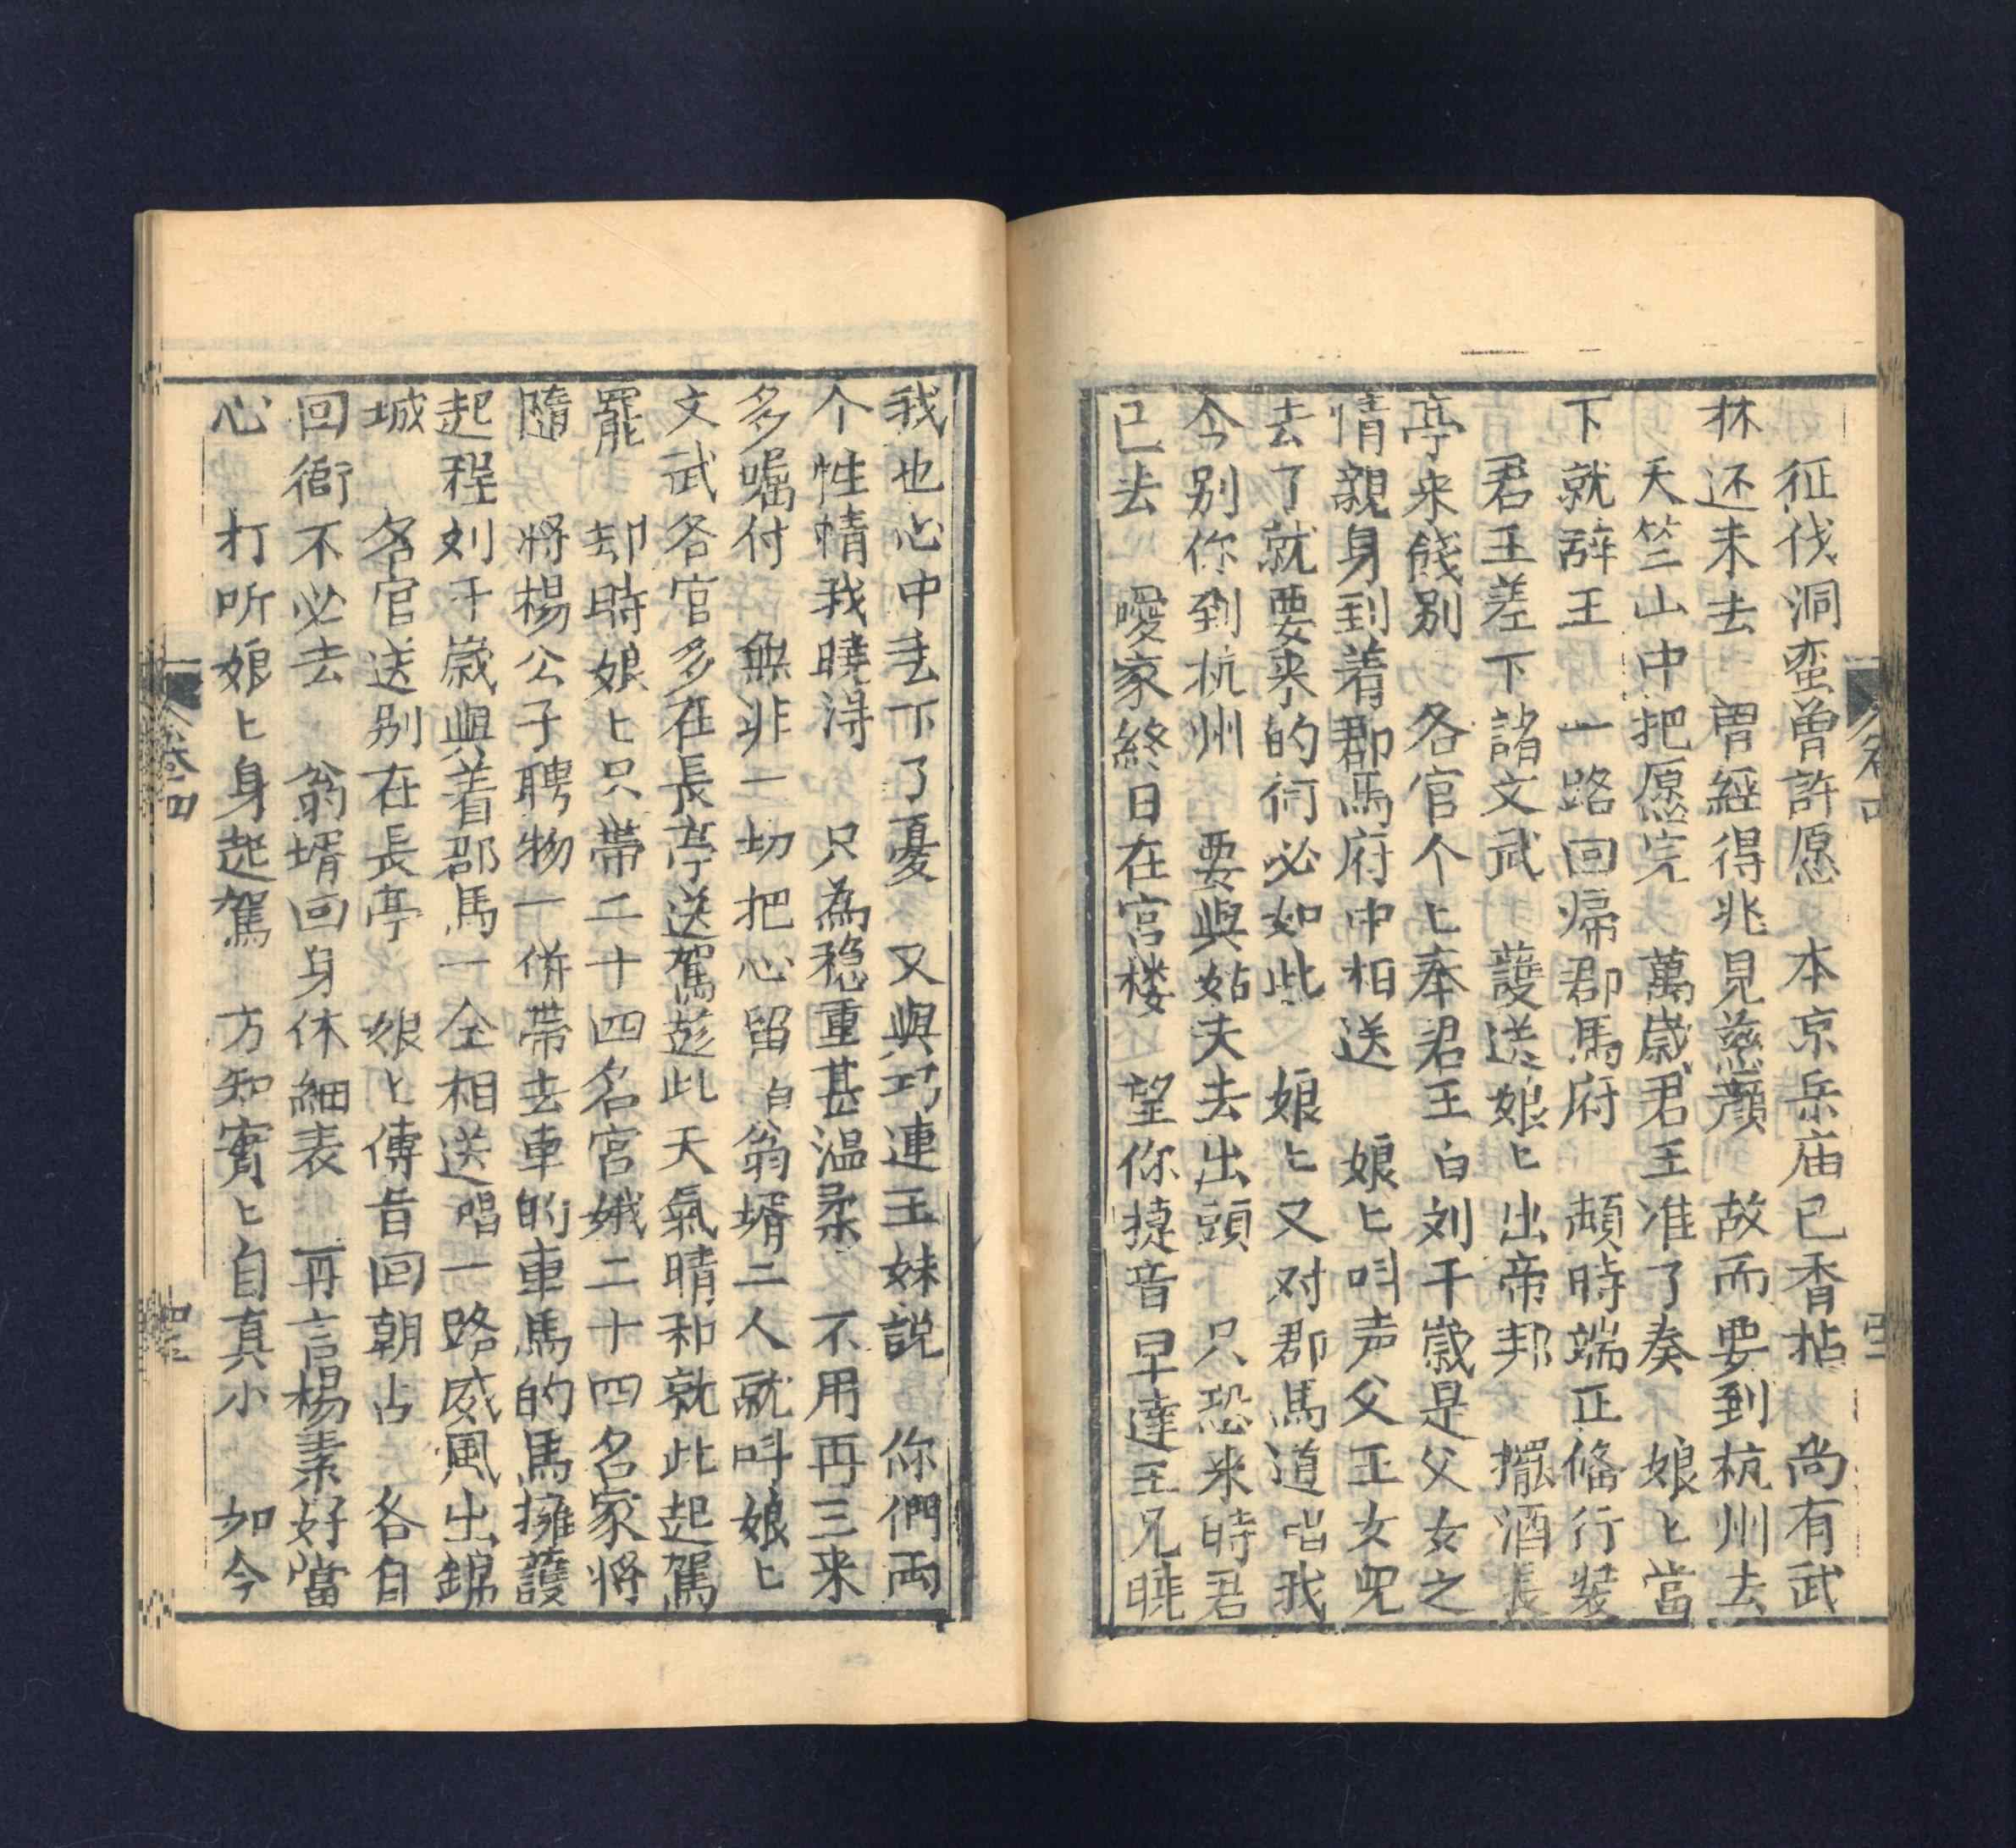 征伐洞蛮曽許愿 本京岳庙已香拈 尚有武
林还未去 曽經得兆見慈顔 故而要到杭州去
天竺山中把愿完 萬歲君王准了奏 娘〻當
下就辞王 一路回㷌郡馬府 頼時端正俻行裝
君王差下諸文武 護送娘〻出帝邦 擺酒長
亭来餞别 各官个〻奉君王白刘千歲是父女之
情親身到着郡馬府中相送 娘〻呌声父王女兒
去了就要来的何必如此 娘〻又对郡馬道唱我
今别你到杭州 要與姑夫去出頭 只恐来時君
已去 噯家終日在宫楼 望你捷音早達王兄曉
卷四
我也心中丢下了憂 又與巧連王妹説 你們両
个性情我曉淂 只為穏重甚温柔 不用再三来
多嘱付 無非一切把心留白翁壻二人就呌娘〻
文武各官多在長亭送駕趂此天氣晴和就此起駕
罷 却時娘〻只帶二十四名宫娥二十四名家将
隨 將楊公子聘物一併帶去車的車馬的馬擁護
起程刘千歲與着郡馬一仝相送唱一路威風出錦
城 各官送别在長亭 娘〻傳旨回朝占 各自
回衙不必去 翁壻回身休細表 再言楊素好當
心 打听娘〻身起駕 方知實〻自真小 如今
卷四